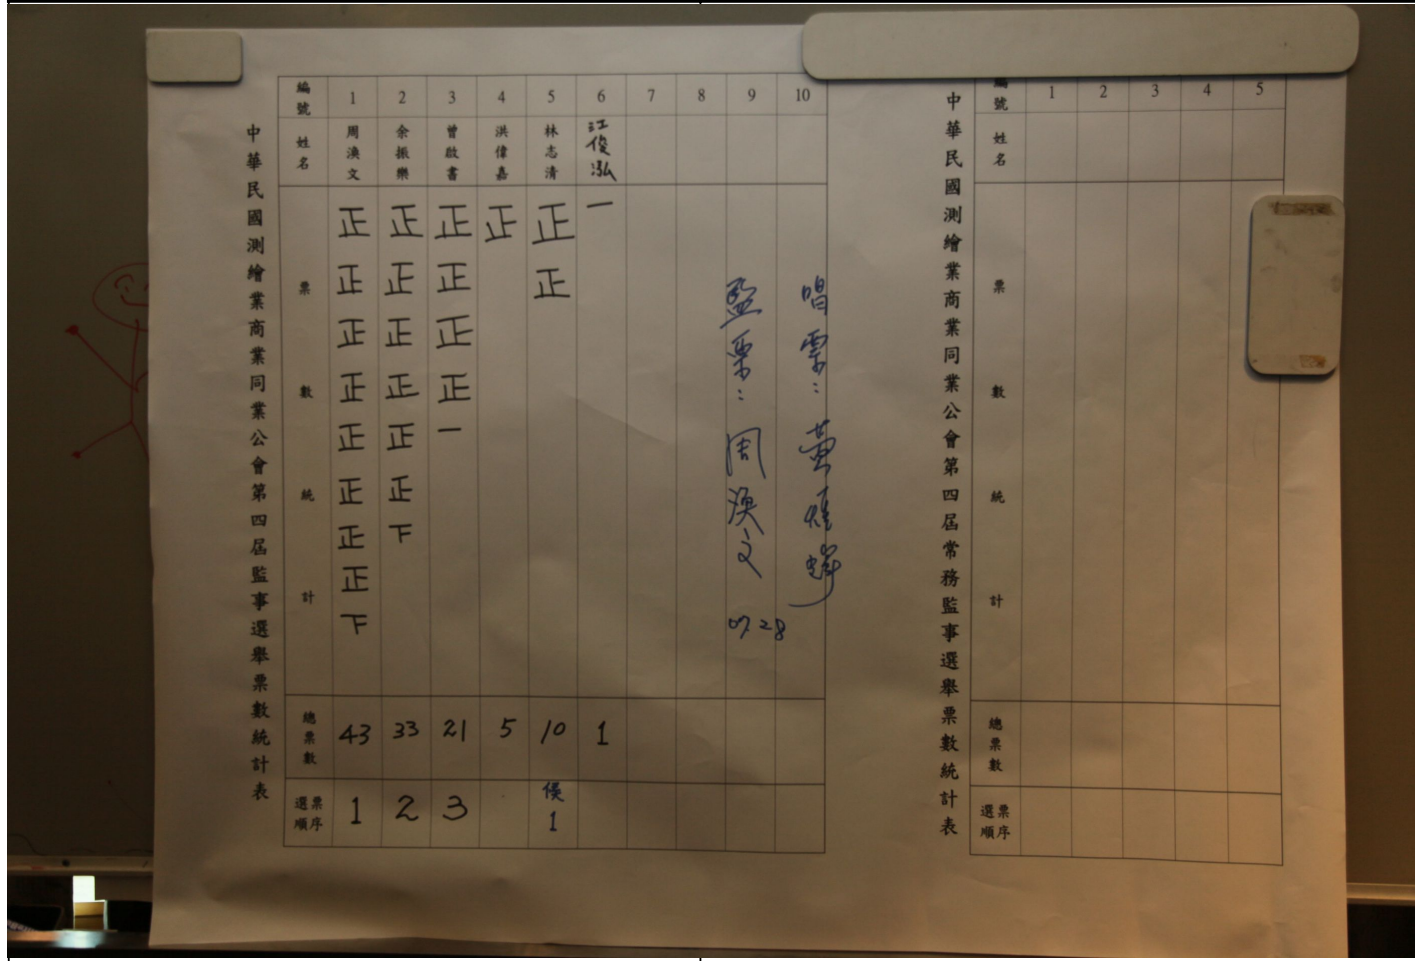 中華民國測繪業商業同業公會第四屆監事選舉票數統計表
編號 1 2 3 4 5 6 7 8 9 10
姓名 周渙文 余振樂 曾啟書 洪偉嘉 林志清 江俊泓
票數統計
正 正 正 正 正 一
正 正 正 正
正 正 正
正 正 正
正 正 一
正 正
正 下
正
下
唱票:黃
監票:周渙文
07.28
總票數 43 33 21 5 10 1
選票順序 1 2 3 侯1
中華民國測繪業商業同業公會第四屆常務監事選舉票數統計表
編號 1 2 3 4 5
姓名
票數統計
總票數
選票順序